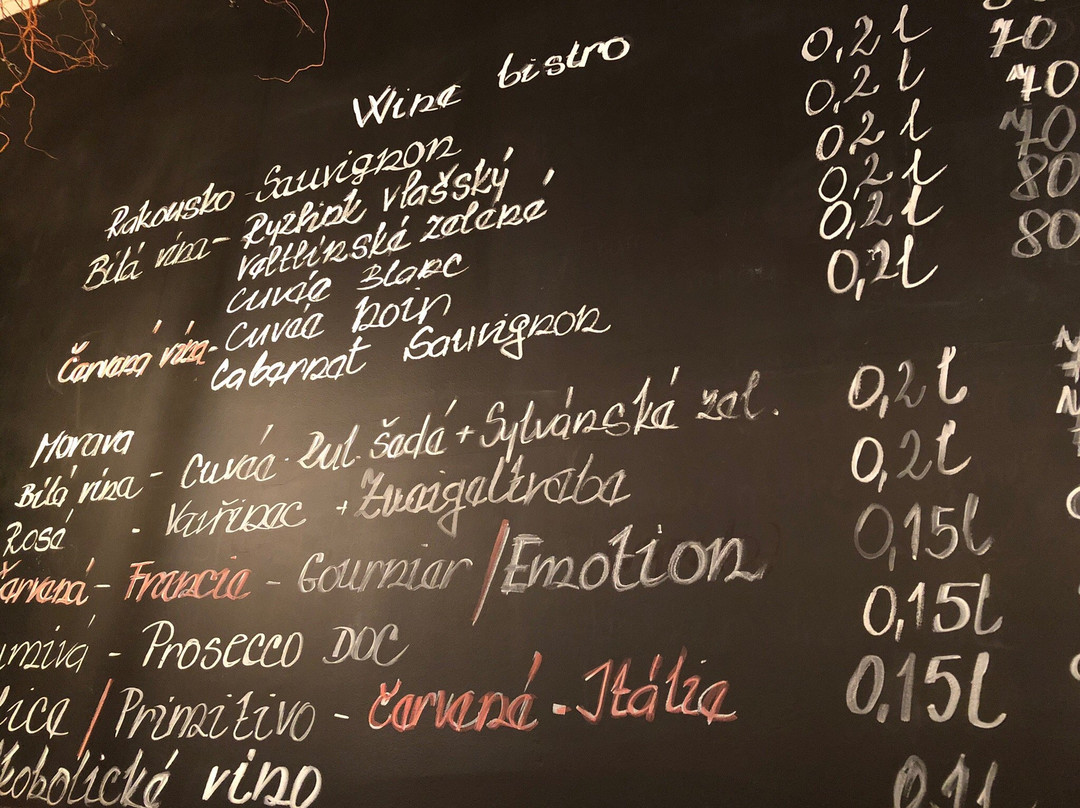 Wine bistro
Rakousko - Sauvignon 0,2 l 70
Bílá vína - Ryzlink vlašský 0,2 l 70
Veltlínské zelené 0,2 l 70
Cuvée Blanc 0,2 l 80
Červená vína - Cuvée noir 0,2 l 80
Cabernet Sauvignon 0,2 l
Morava
Bílá vína - Cuvée Rul. šedé + Sylvánské zel. 0,2 l
Rosé - Vavřinec + Zweigeltrebe 0,2 l
Červená - Francie - Gournier / Emotion 0,15 l
umivá - Prosecco DOC 0,15 l
lice / Primitivo - červené - Itálie 0,15 l
koholické víno 0,1 l